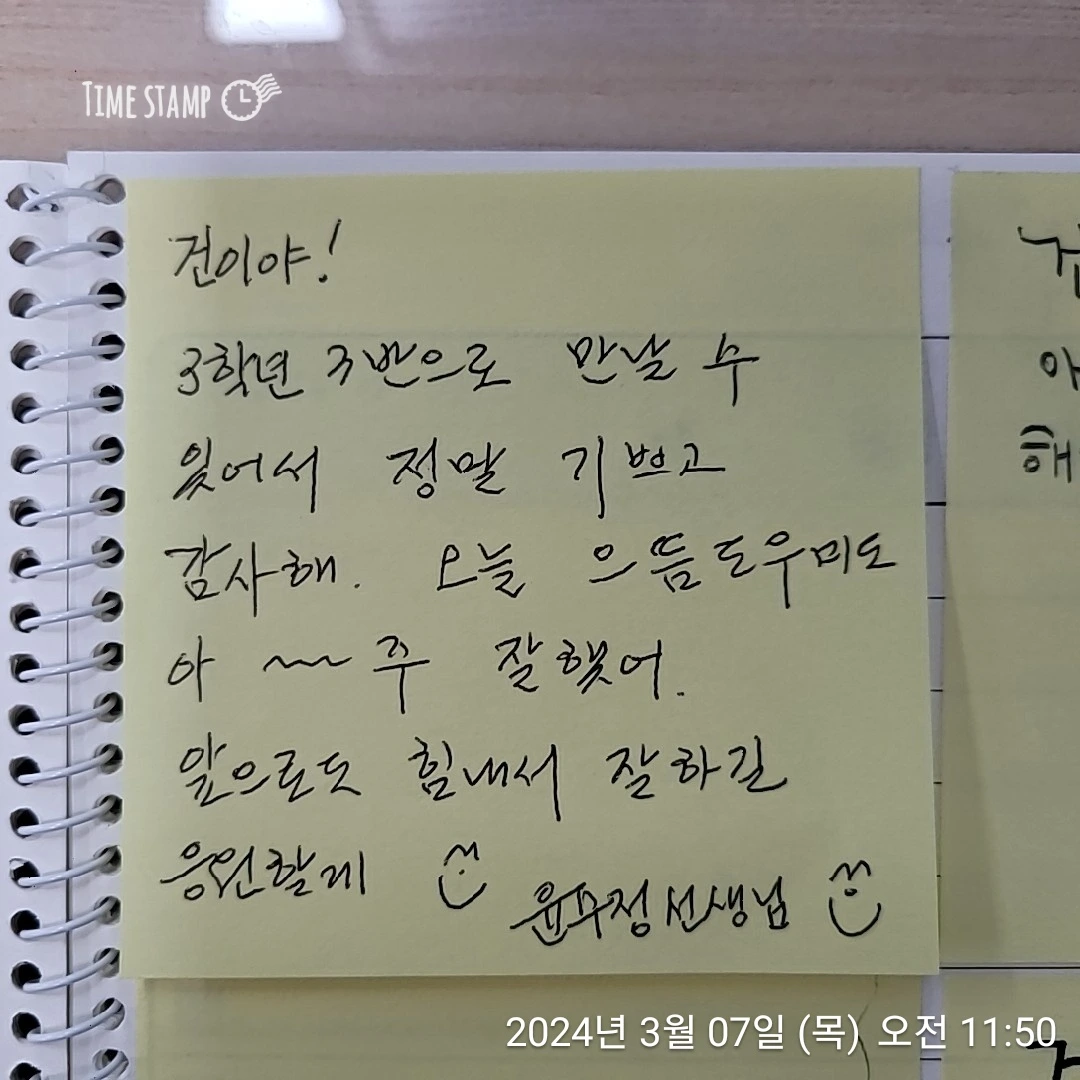 TIME STAMP
건이야!
3학년 3반으로 만날 수
있어서 정말 기쁘고
감사해. 오늘 으뜸도우미도
아 ~~~ 주 잘했어.
앞으로도 힘내서 잘하길
응원할게
윤수정선생님
아
해
2024년 3월 07일 (목) 오전 11:50